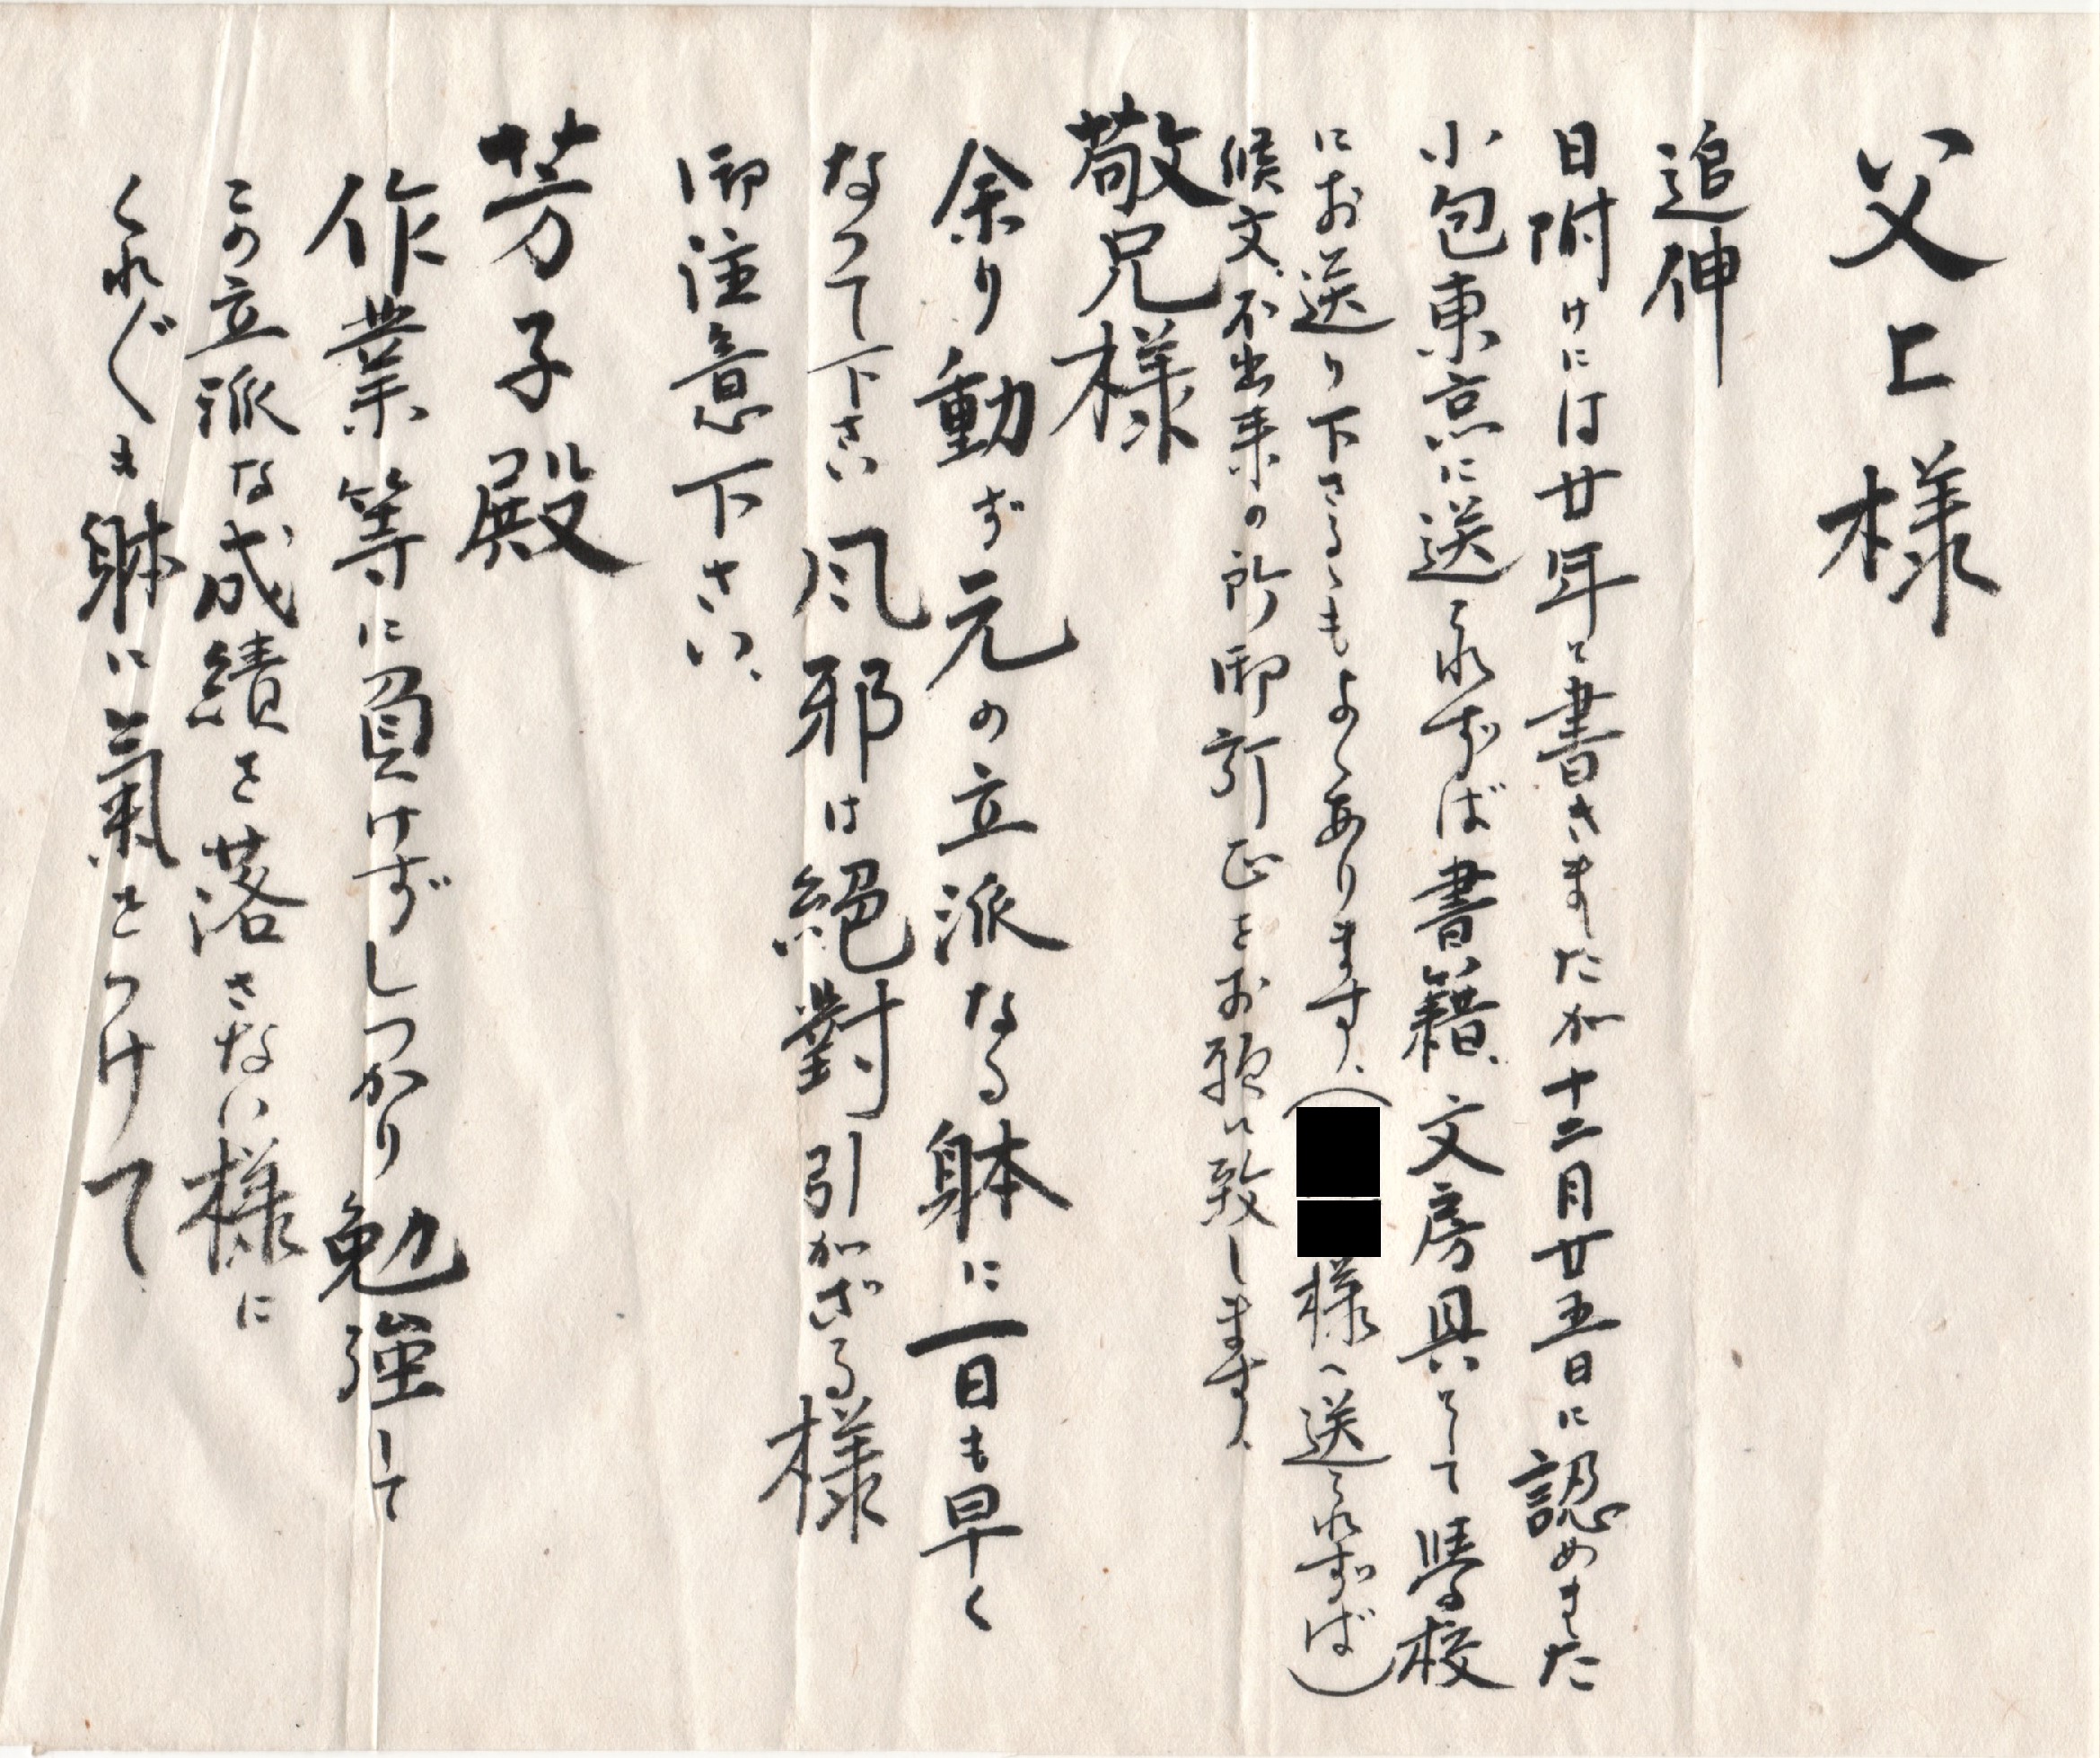 父上様
追伸
日附けには廿年と書きましたが十二月廿五日に認めました
小包東京に送られずば書籍、文房具そして學校
にお送り下さるゝもよくあります、(
様へ送られずば)
候文、不出来の所御訂正をお願い致します、
敬兄様
余り動ず元の立派なる躰に一日も早く
なつて下さい風邪は絶對引かざる様
御注意下さい、
芳子殿
作業等に負けずしつかり勉強して
この立派な成績を落さない様に
くれぐも躰に氣をつけて